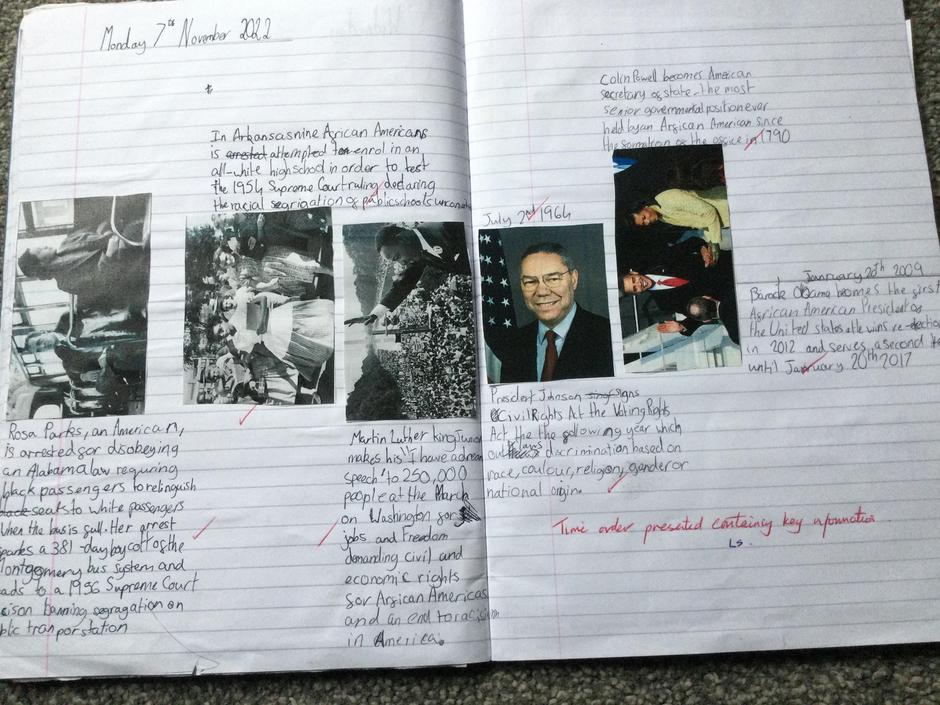 Monday 7th November 2022
In Arkansasnine African Americans
is arrested attempted to enrol in an
all-white highschool in order to test
the 1954 Supreme Court ruling declaring
the racial segrigation of publicschools
Rosa Parks, an American,
is arrested for disobeying
an Alabama law requring
black passengers to relinguish
black seats to white passengers
When the bus is full. Her arrest
sparks a 381-day boycott of the
Montgomery bus system and
leads to a 1956 Supreme Court
banning segragation on
tranportation
Martin Luther king Junior
makes his "I have a dream
speech" to 250,000
people at the March
on Washington for
jobs and Freedom
demanding civil and
economic rights
for African Americas
and an end to racism
in America.
July 2nd 1964
President Johnson signs
Civil Rights At the Voting Rights
Act the the following year which
discrimination based on
race, coulour, religion, gender or
national origin.
Colin Powell becomes American
secretary of state - the most
senior governmental position ever
held by an African American since
the formation of the office in 1790
January 20th 2009
Barack Obama becomes the first
African American President of
the United states He wins re-election
in 2012 and serves a second
until January 20th 2017
Time order presented containing key information
LS.